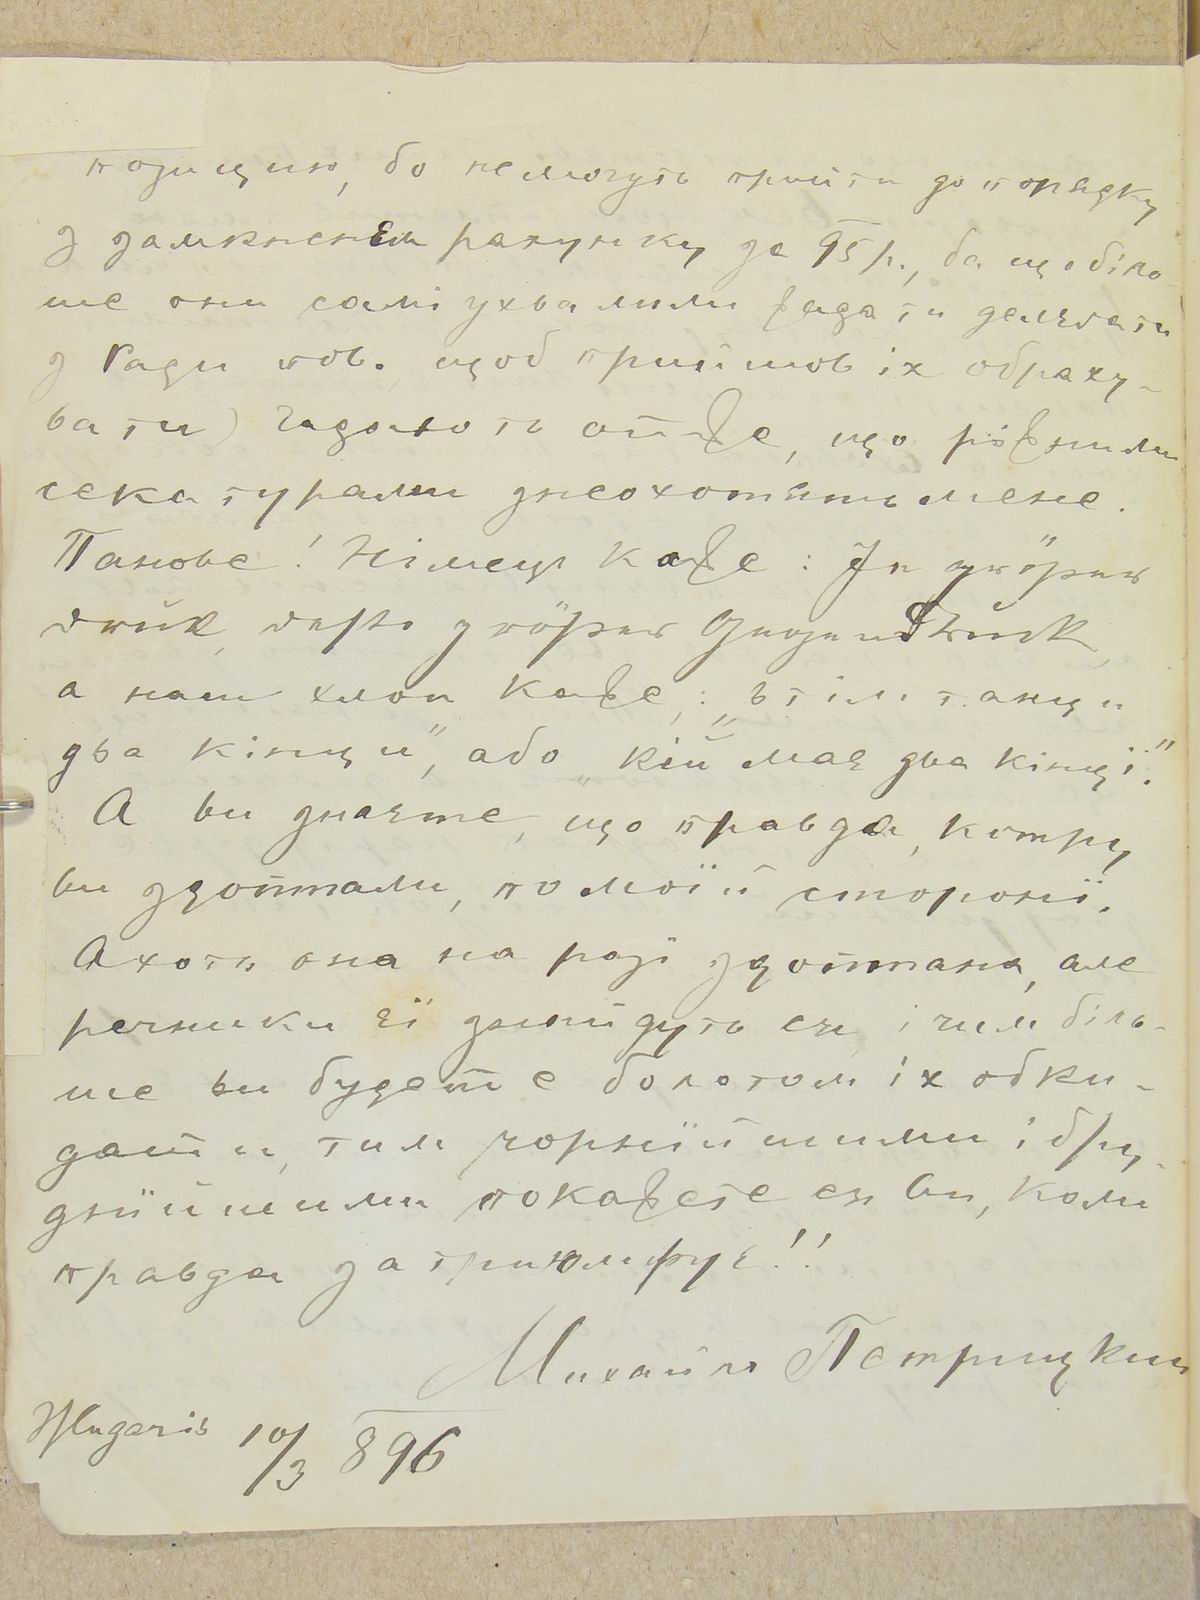 позицию, бо не можуть прийти до порядку
з замкненєм рахунку за 95 р., ба що біль
ше они самі ухвалили жадати делєгати
з Ради тов. щоб прийшов іх обраху-
вати) гадають отже, що ріжними
секатурами знеохотять мене.
Панове! Нїмец каже: Je größer
druk, desto größer Gegendruck,
а наш хлоп каже: „в тім танци
два кінци", або „кій має два кінцї."
А ви знаєте, що правда, котру
ви здоптали, по моїй сторонї.
А хоть она на разї здоптана, але
речники єї знайдуть ся, і чим біль-
ше ви будете болотом іх обки-
дати, тим чорнїйшими і бру-
днїйшими покажете ся ви, коли
правда затриюмфує!!
Михайло Петрицкий
10/3 896